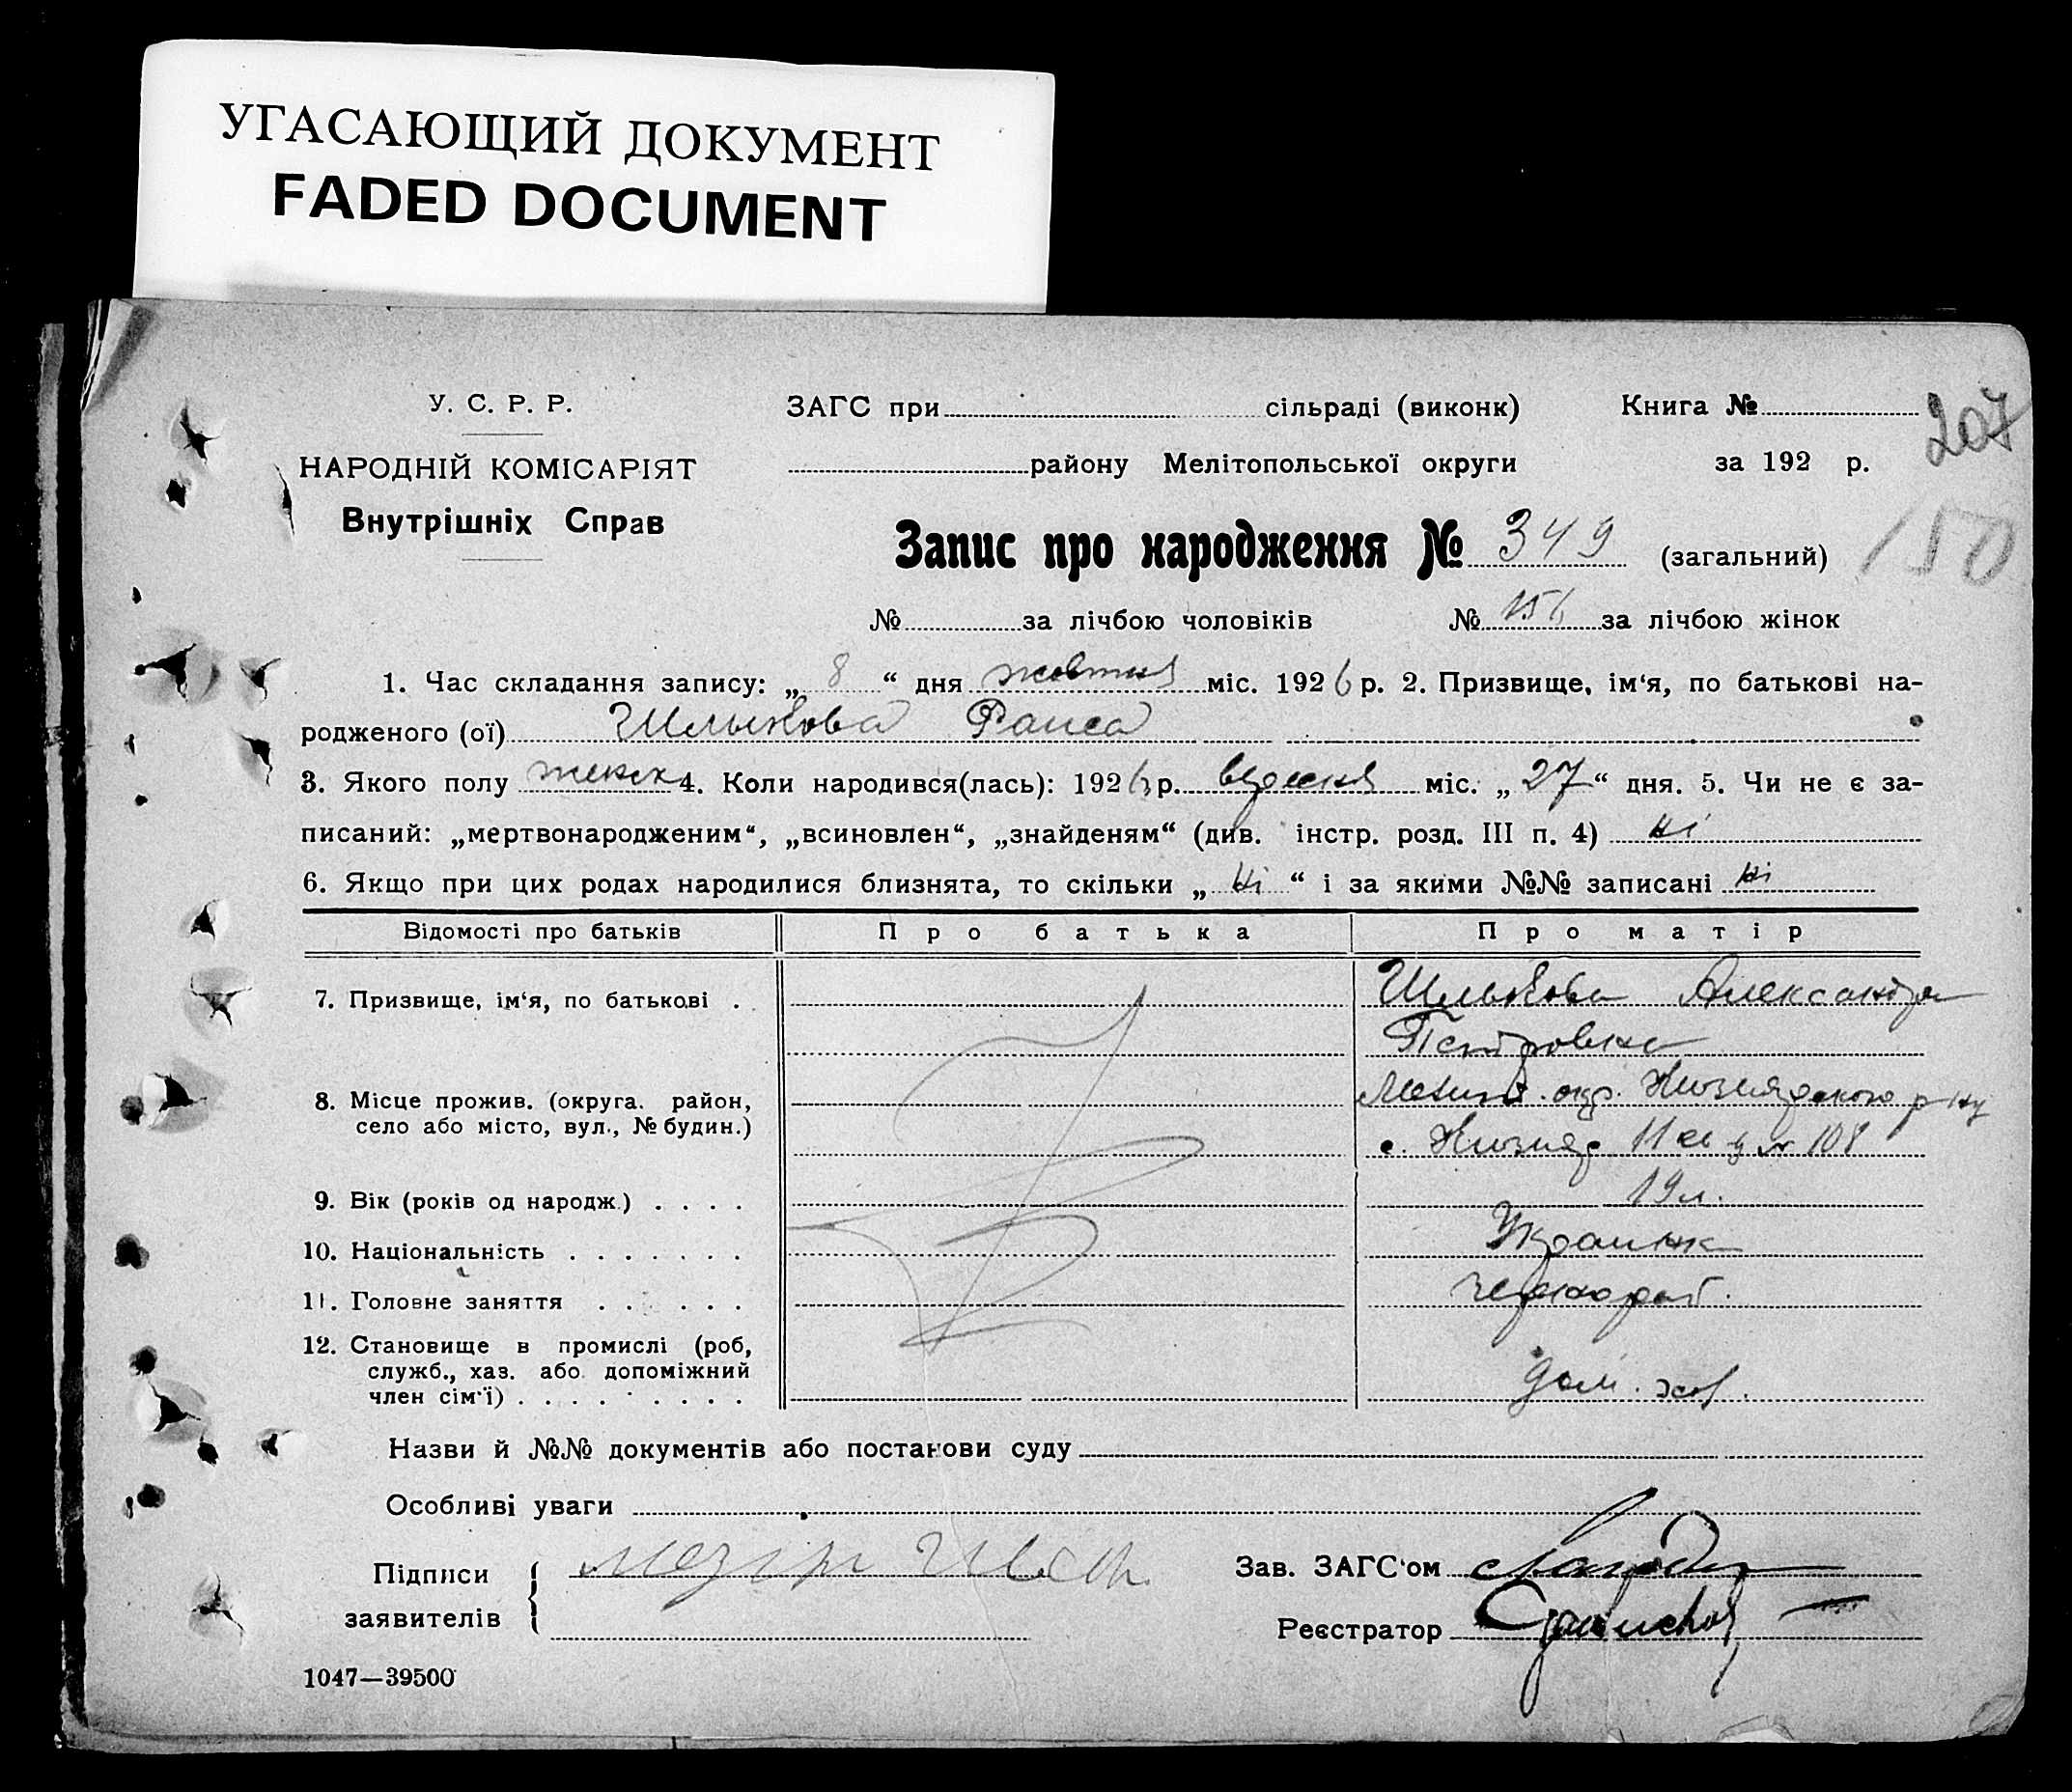 УГАСАЮЩИЙ ДОКУМЕНТ
FADED DOCUMENT
У. С. Р. Р.
НАРОДНІЙ КОМІСАРІЯТ
Внутрішніх Справ
ЗАГС при сільраді (виконк)
Книга №
207
району Мелітопольської округи
за 192 р.
Запис про народження № 349 (загальний)
150
№ за лічбою чоловіків № 156 за лічбою жінок
1. Час складання запису: „ 8 “ дня жовтня міс. 1926 р. 2. Призвище, ім‘я, по батькові на-
родженого (ої) Шлыкова Раиса
3. Якого полу женск 4. Коли народився(лась): 1926 р. вересня міс. „ 27 “ дня. 5. Чи не є за-
писаний: „мертвонародженим“, „всиновлен“, „знайденям“ (див. інстр. розд. III п. 4) ні
6. Якщо при цих родах народилися близнята, то скільки „ ні “ і за якими №№ записані ні
Відомості про батьків Про батька Про матір
7. Призвище, ім‘я, по батькові . Шлыкова Александра
Петровна
8. Місце прожив. (округа. район, Мелит. окр. р-ну
село або місто, вул., № будин.) с. 11 № 108
9. Вік (років од народж.) . . . . 19 л.
10. Національність . . . . . . . Украинк
11. Головне заняття . . . . . . чернораб.
12. Становище в промислі (роб,
служб., хаз. або допоміжний
член сім‘ї) . . . . . . . . дом. хоз.
Назви й №№ документів або постанови суду
Особливі уваги
Підписи
заявителів
Зав. ЗАГС‘ом
Реєстратор
1047—39500